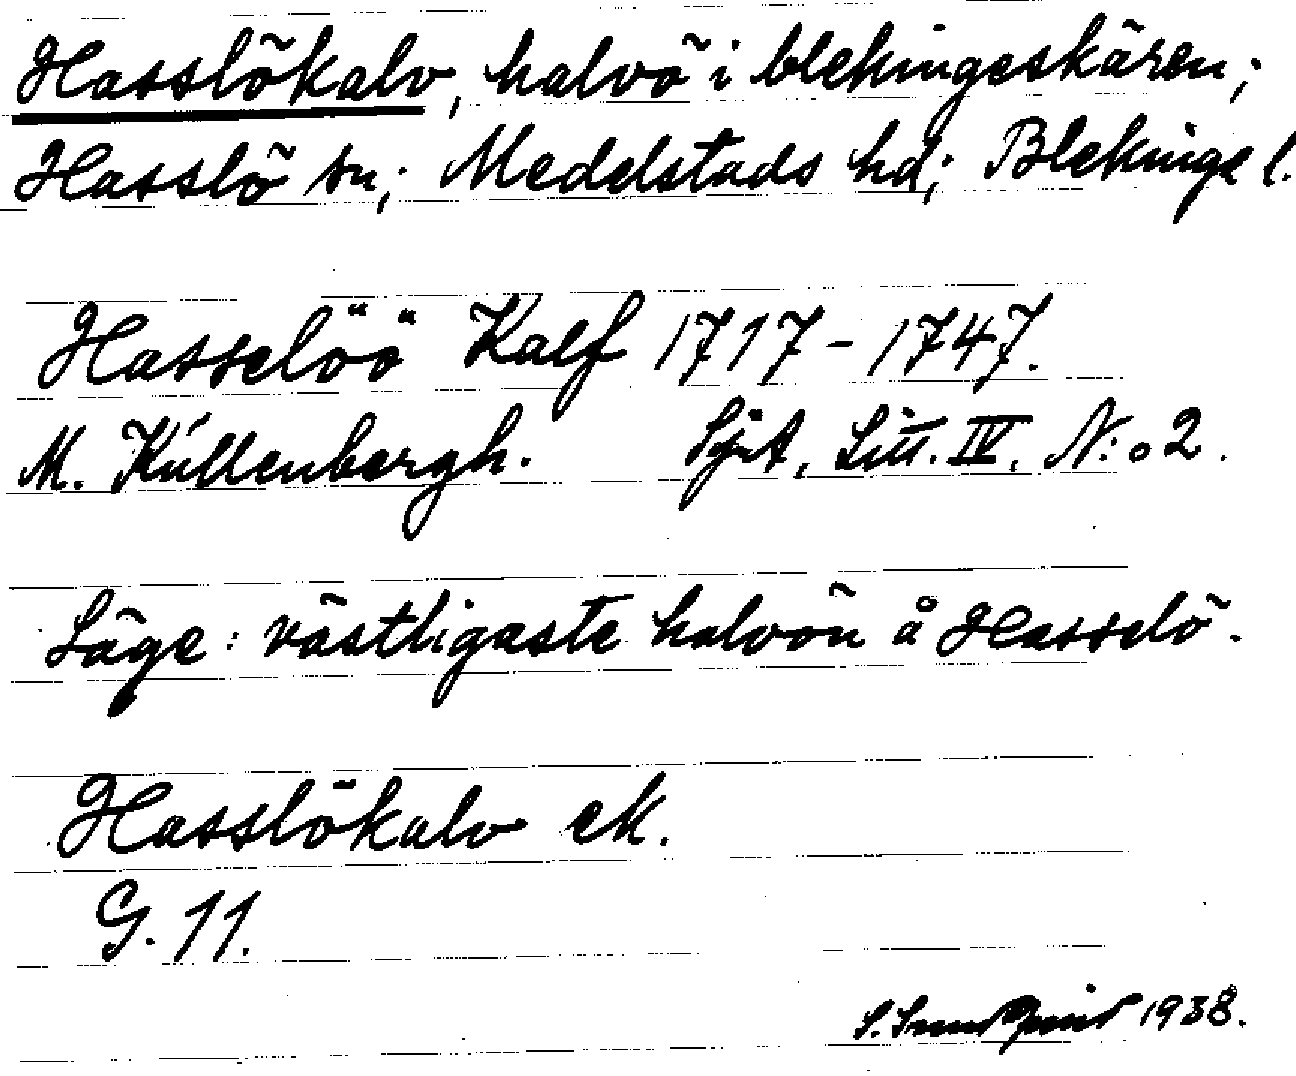 Hasslökalv, halvö i blekingeskären;
Hasslö sn; Medelstads hd; Blekinge l.
Hasselöö Kalf 1717-1747.
M. Kúllenbergh. Sjöt, Litt. IV, N:o 2.
Läge: västligaste halvön å Hasslö.
Hasslökalv ek.
G. 11.
S. 1938.